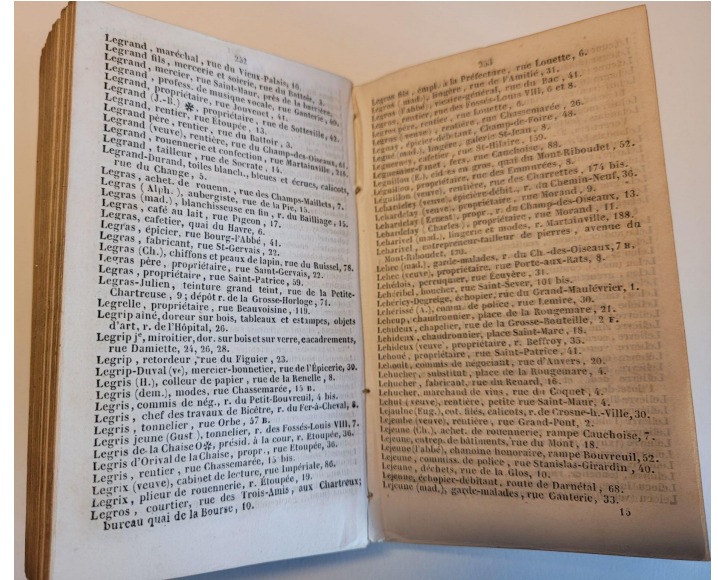 252
Legrand, maréchal, rue du Vieux-Palais, 10.
Legrand fils, mercerie et soierie, rue du Battoir, 3.
Legrand, mercier, rue Saint-Maur, près de la barrière.
Legrand, profess. de musique vocale, rue Ganterie,
Legrand, propriétaire, rue Jouvenet, 41.
Legrand (J.-B.) ✻, propriétaire, rue de Sotteville,
Legrand, rentier, rue Etoupée, 13.
Legrand père, rentier, rue du Battoir, 3.
Legrand (veuve), rentière, rue du Champ-des-Oiseaux,
Legrand, rouennerie et confection, rue Martainville,
Legrand, tailleur, rue de Socrate, 14.
Legrand-Durand, toiles blanch., bleues et écrues, calicots,
rue du Change, 5.
Legras, achet. de rouenn., rue des Champs-Maillets, 7.
Legras (Alph.), aubergiste, rue de la Pie, 15.
Legras (mad.), blanchisseuse en fin, r. du Bailliage, 15.
Legras, café au lait, rue Pigeon, 17.
Legras, cafetier, quai du Havre, 6.
Legras, épicier, rue Bourg-l'Abbé, 41.
Legras, fabricant, rue St-Gervais, 22.
Legras (Ch.), chiffons et peaux de lapin, rue du Ruissel, 78.
Legras père, propriétaire, rue Saint-Gervais, 22.
Legras, propriétaire, rue Saint-Patrice, 59.
Legras-Julien, teinture grand teint, rue de la Petite-
Chartreuse, 9; dépôt r. de la Grosse-Horloge, 71.
Legrelle, propriétaire, rue Beauvoisine, 119.
Legrip aîné, doreur sur bois, tableaux et estampes, objets
d'art, r. de l'Hôpital, 26.
Legrip jᵉ, miroitier, dor. sur bois et sur verre, encadrements,
rue Damiette, 24, 26, 28.
Legrip, retordeur, rue du Figuier, 23.
Legrip-Duval (vᵉ), mercier-bonnetier, rue de l'Épicerie, 30.
Legris (H.), colleur de papier, rue de la Renelle, 8.
Legris (dem.), modes, rue Chassemarée, 15 B.
Legris, commis de nég., r. du Petit-Bouvreuil, 4 bis.
Legris, chef des travaux de Bicêtre, r. du Fer-à-Cheval, 8.
Legris, tonnelier, rue Orbe, 57 B.
Legris jeune (Gust.), tonnelier, r. des Fossés-Louis VIII, 7.
Legris de la Chaise O✻, présid. à la cour, r. Etoupée, 36.
Legris d'Orival de la Chaise, propr., rue Etoupée, 36.
Legris, rentier, rue Chassemarée, 15 bis.
Legrix (veuve), cabinet de lecture, rue Impériale, 86.
Legrix, plieur de rouennerie, r. Étoupée, 19.
Legros, courtier, rue des Trois-Amis, aux Chartreux;
bureau quai de la Bourse, 10.
253
Legros fils, empl. à la Préfecture, rue Louette, 6.
Legros (mad.), lingère, rue de l'Amitié, 31.
Legros (l'abbé), vicaire-général, rue du Bac, 41.
Legros, rentier, rue des Fossés-Louis VIII, 6 et 8.
Legros père, rentier, rue Louette, 6.
Legros (veuve), rentière, rue Chassemarée, 26.
épicier-débitant, Champ-de-Foire, 48.
(mad.), lingère, galerie St-Jean, 8.
cafetier, rue St-Hilaire, 159.
fers, rue Cauchoise, 88.
cidres en gros, quai du Mont-Riboudet, 52.
propriétaire, rue des Emmurées, 8.
Léguillon (veuve), rentière, rue des Charrettes, 174 bis.
épicière-débit., r. du Chemin-Neuf, 36.
Lehardelay (veuve), propriétaire, rue Morand, 9.
Lehardelay (Ernest), propr., r. du Champ-des-Oiseaux, 13.
Lehardelay (Charles), propriétaire, rue Morand, 11.
Leharivel (mad.), lingerie et modes, r. Martainville, 188.
Leharivel, entrepreneur-tailleur de pierres, avenue du
Mont-Riboudet, 120.
(mad.), garde-malades, r. du Ch.-des-Oiseaux, 7 B.
(veuve), propriétaire, rue Porte-aux-Rats, 8.
Lehédois, perruquier, rue Écuyère, 31.
boucher, rue Saint-Sever, 101 bis.
Lehéricy-Degreige, échopier, rue du Grand-Maulévrier, 1.
Lehérissé (A.), comm. de police, rue Lemire, 30.
chaudronnier, place de la Rougemare, 21.
Lehideux, chapelier, rue de la Grosse-Bouteille, 2 F.
Lehideux, chaudronnier, place Saint-Marc, 18.
Lehideux (veuve), propriétaire, r. Beffroy, 35.
propriétaire, rue Saint-Patrice, 41.
commis de négociant, rue d'Anvers, 20.
Lehucher, substitut, place de la Rougemare, 4.
Lehucher, fabricant, rue du Renard, 16.
Lehucher, marchand de vins, rue du Coquet, 4.
(veuve), rentière, petite rue Saint-Maur, 4.
Lejaulne (Eug.), cot. filés, calicots, r. de Crosne-h.-Ville, 30.
(veuve), rentière, rue Grand-Pont, 2.
Lejeune (Ch.), achet. de rouennerie, rampe Cauchoise, 7.
Lejeune, entrep. de bâtiments, rue du Mont, 18.
Lejeune (l'abbé), chanoine honoraire, rampe Bouvreuil, 52.
Lejeune, commiss. de police, rue Stanislas-Girardin, 40.
Lejeune, déchets, rue de la Glos, 10.
Lejeune, échopier-débitant, route de Darnétal, 68.
Lejeune (mad.), garde-malades, rue Ganterie, 33.
15